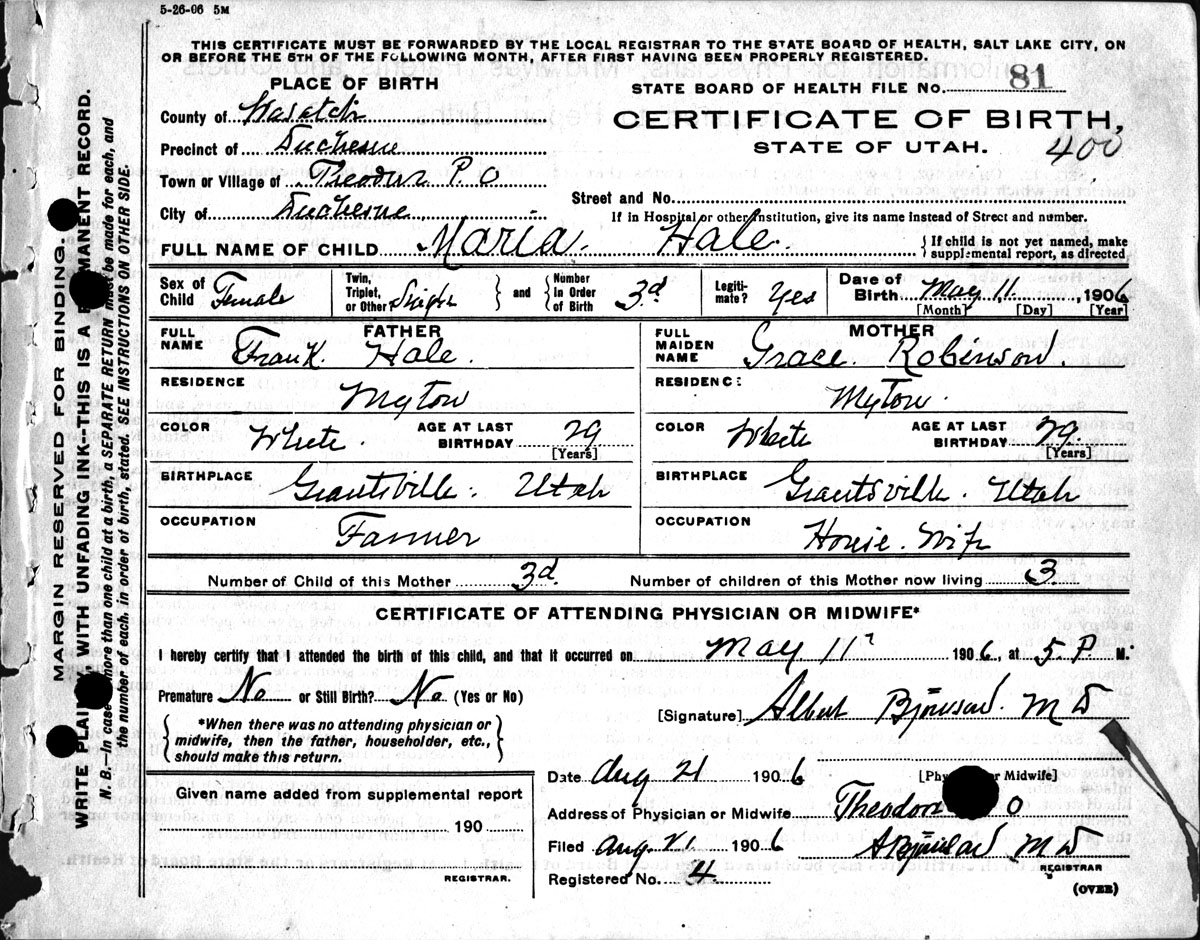 5-26-06 5M
THIS CERTIFICATE MUST BE FORWARDED BY THE LOCAL REGISTRAR TO THE STATE BOARD OF HEALTH, SALT LAKE CITY, ON
OR BEFORE THE 5TH OF THE FOLLOWING MONTH, AFTER FIRST HAVING BEEN PROPERLY REGISTERED.
PLACE OF BIRTH
STATE BOARD OF HEALTH FILE No. 81
County of Wasatch
CERTIFICATE OF BIRTH,
Precinct of Duchesne
STATE OF UTAH. 400
Town or Village of Theodore P. O
Street and No.
City of Duchesne
If in Hospital or other Institution, give its name instead of Street and number.
FULL NAME OF CHILD Maria Hale
{ If child is not yet named, make
supplemental report, as directed
Sex of Child Female
Twin, Triplet, or Other? Single } and { Number in Order of Birth 3d
Legitimate? Yes
Date of Birth May 11, 1906
[Month] [Day] [Year]
FATHER
FULL NAME Frank Hale.
RESIDENCE Myton
COLOR White. AGE AT LAST BIRTHDAY 29
[Years]
BIRTHPLACE Grantsville. Utah
OCCUPATION Farmer
MOTHER
FULL MAIDEN NAME Grace Robinson
RESIDENCE Myton.
COLOR White AGE AT LAST BIRTHDAY 29.
[Years]
BIRTHPLACE Grantsville. Utah
OCCUPATION House. Wife
Number of Child of this Mother 3d. Number of children of this Mother now living 3
CERTIFICATE OF ATTENDING PHYSICIAN OR MIDWIFE*
I hereby certify that I attended the birth of this child, and that it occurred on May 11 1906, at 5 P. M.
Premature No or Still Birth? No (Yes or No)
[Signature] Albert M D
{ *When there was no attending physician or
midwife, then the father, householder, etc.,
should make this return. }
Date Aug 21 1906
or Midwife]
Address of Physician or Midwife Theodore O
Filed Aug 21. 1906 M D
REGISTRAR
Registered No. 4
(OVER)
Given name added from supplemental report
190
REGISTRAR.
MARGIN RESERVED FOR BINDING.
WRITE PLAINLY, WITH UNFADING INK--THIS IS A PERMANENT RECORD.
N. B.—In case more than one child at a birth, a SEPARATE RETURN must be made for each, and
the number of each, in order of birth, stated. SEE INSTRUCTIONS ON OTHER SIDE.